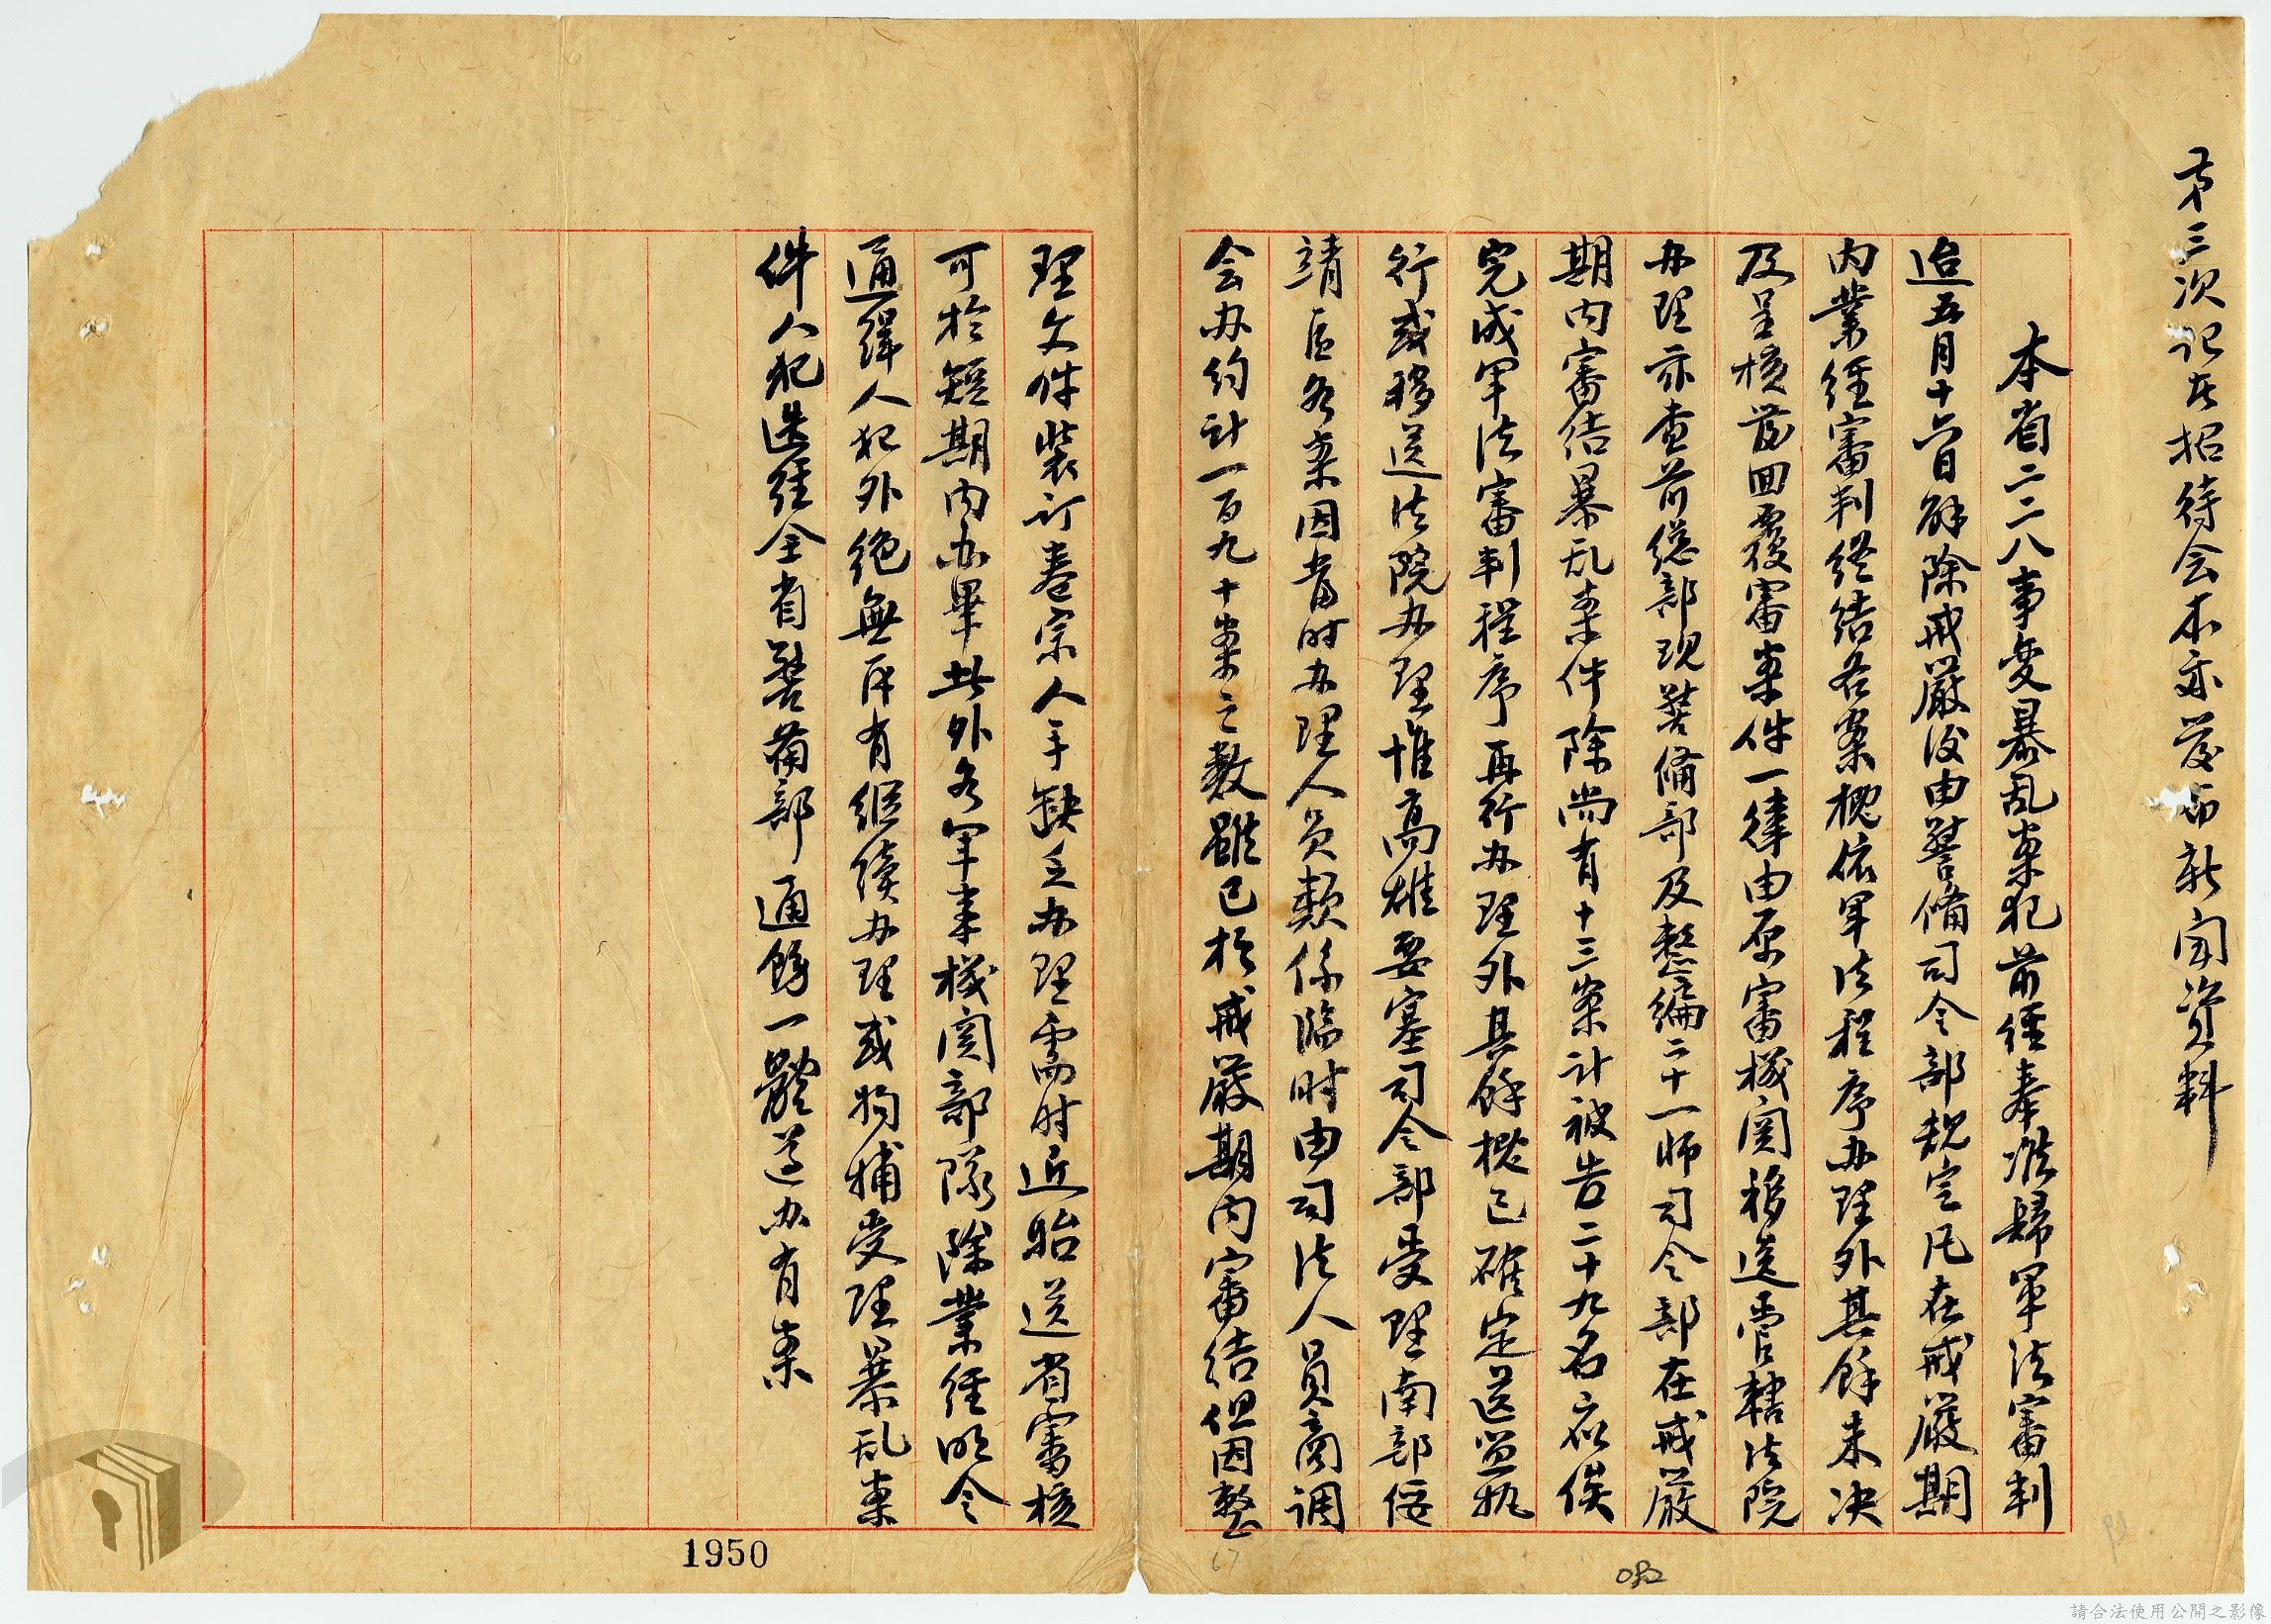 第三次记者招待会本部發布新闻資料
本省二二八事变暴乱案犯前经奉准歸軍法審判
迨五月十六日解除戒嚴後由警備司令部规定凡在戒嚴期
内業经審判终结各案概依军法程序办理外其餘未决
及呈核發回覆審案件一律由原審機関移送管轄法院
办理亦查前総部现警備部及整编二十一师司令部在戒嚴
期内審结暴乱案件除尚有十三案计被告二十九名应俟
完成军法審判程序再行办理外其餘概已確定送监执
行或移送法院办理惟高雄要塞司令部受理南部绥
靖区各案因當时办理人员類係臨时由司法人員商调
会办约计一百九十案之数雖已於戒嚴期内審结但因整
理文件装订卷宗人手缺乏办理需时近始送省審核
可於短期内办畢此外各军事機関部隊除業经明令
通缉人犯外绝無再有继续办理或拘捕受理暴乱案
件人犯迭经全省警備部通飭一體遵办有案
1950
082
67
請合法使用公開之影像